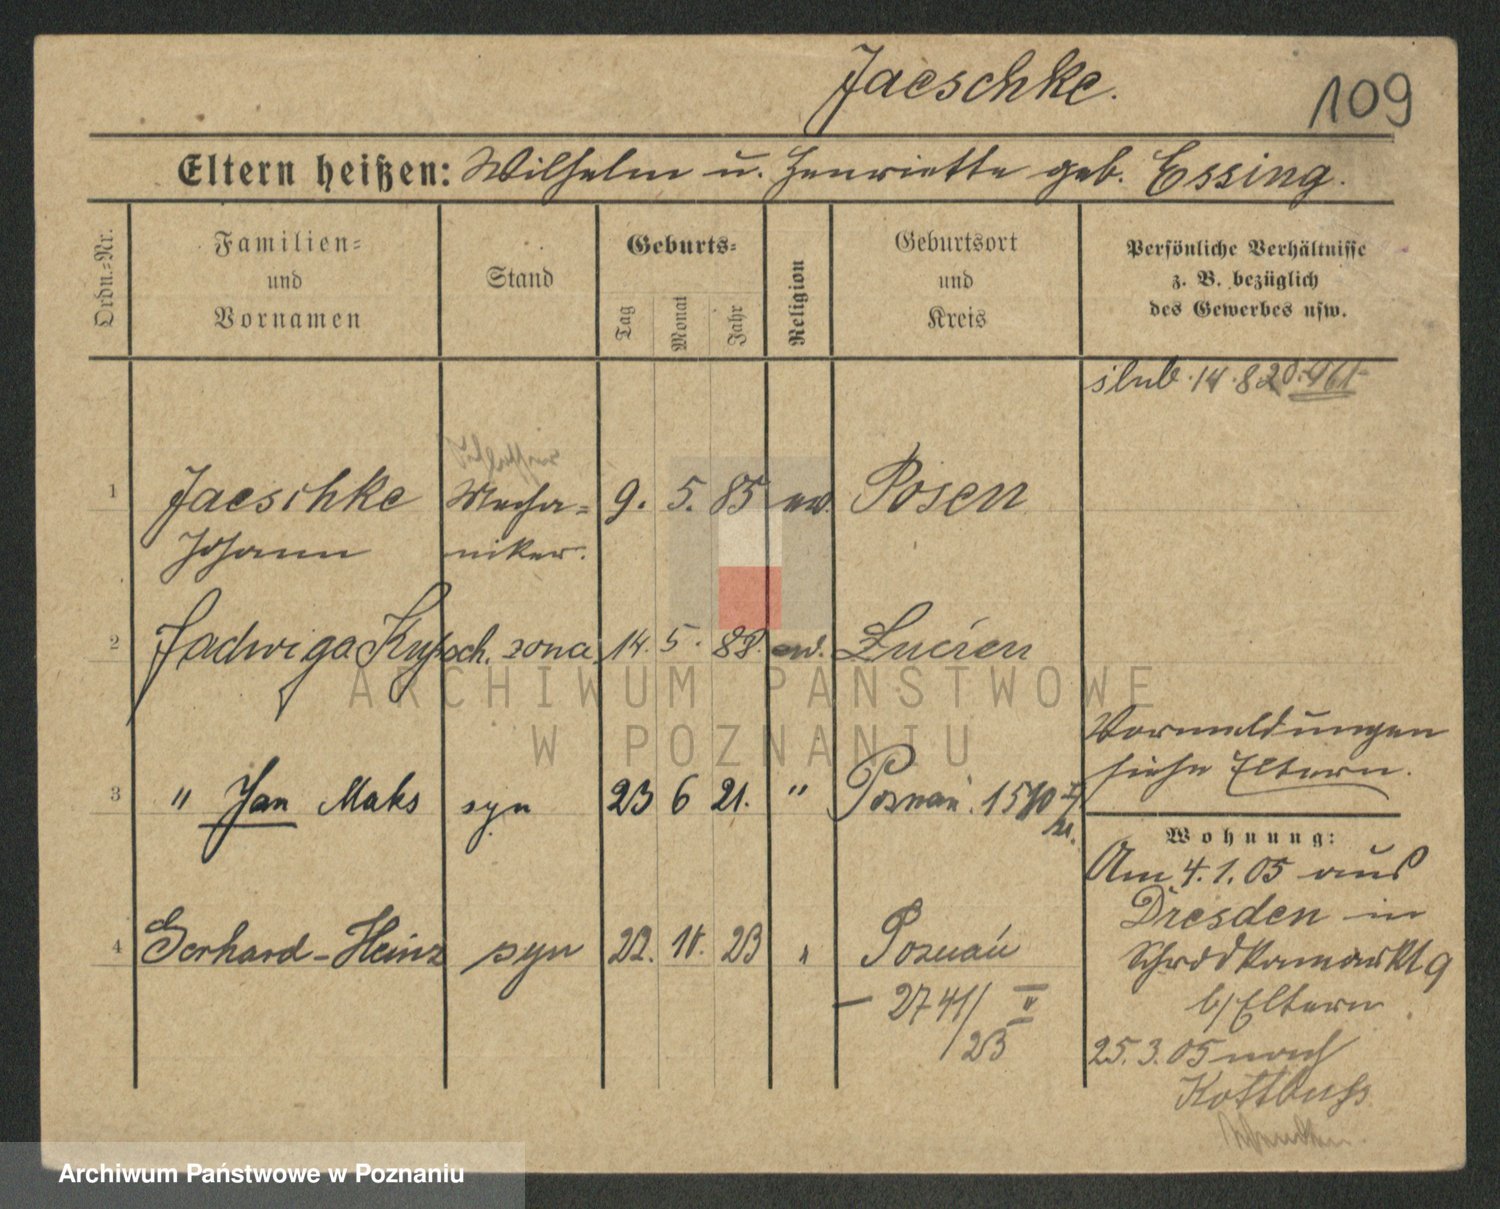 Jaeschke.
109
Eltern heißen: Wilhelm u. Henriette geb. Essing.
Ordn.-Nr.
Familien-
und
Vornamen
Stand
Geburts-
Tag
Monat
Jahr
Religion
Geburtsort
und
Kreis
Persönliche Verhältnisse
z. B. bezüglich
des Gewerbes usw.
ślub 14.8.20.
1 Jaeschke Mecha= 9. 5. 85 ev. Posen
Johann niker.
2 Jadwiga żona 14. 5. 88. ev. Lucien
Vormeldungen
siehe Eltern.
3 " Jan Maks syn 23 6 21. " Poznań.
Wohnung:
Am 4.1.05 aus
Dresden in
Schrodkamarkt 9
b/Eltern.
4 Gerhard-Heinz syn 22. 10. 23 " Poznań
- 2741/II
23
25.3.05 nach
Kottbuss
ARCHIWUM PAŃSTWOWE
W POZNANIU
Archiwum Państwowe w Poznaniu